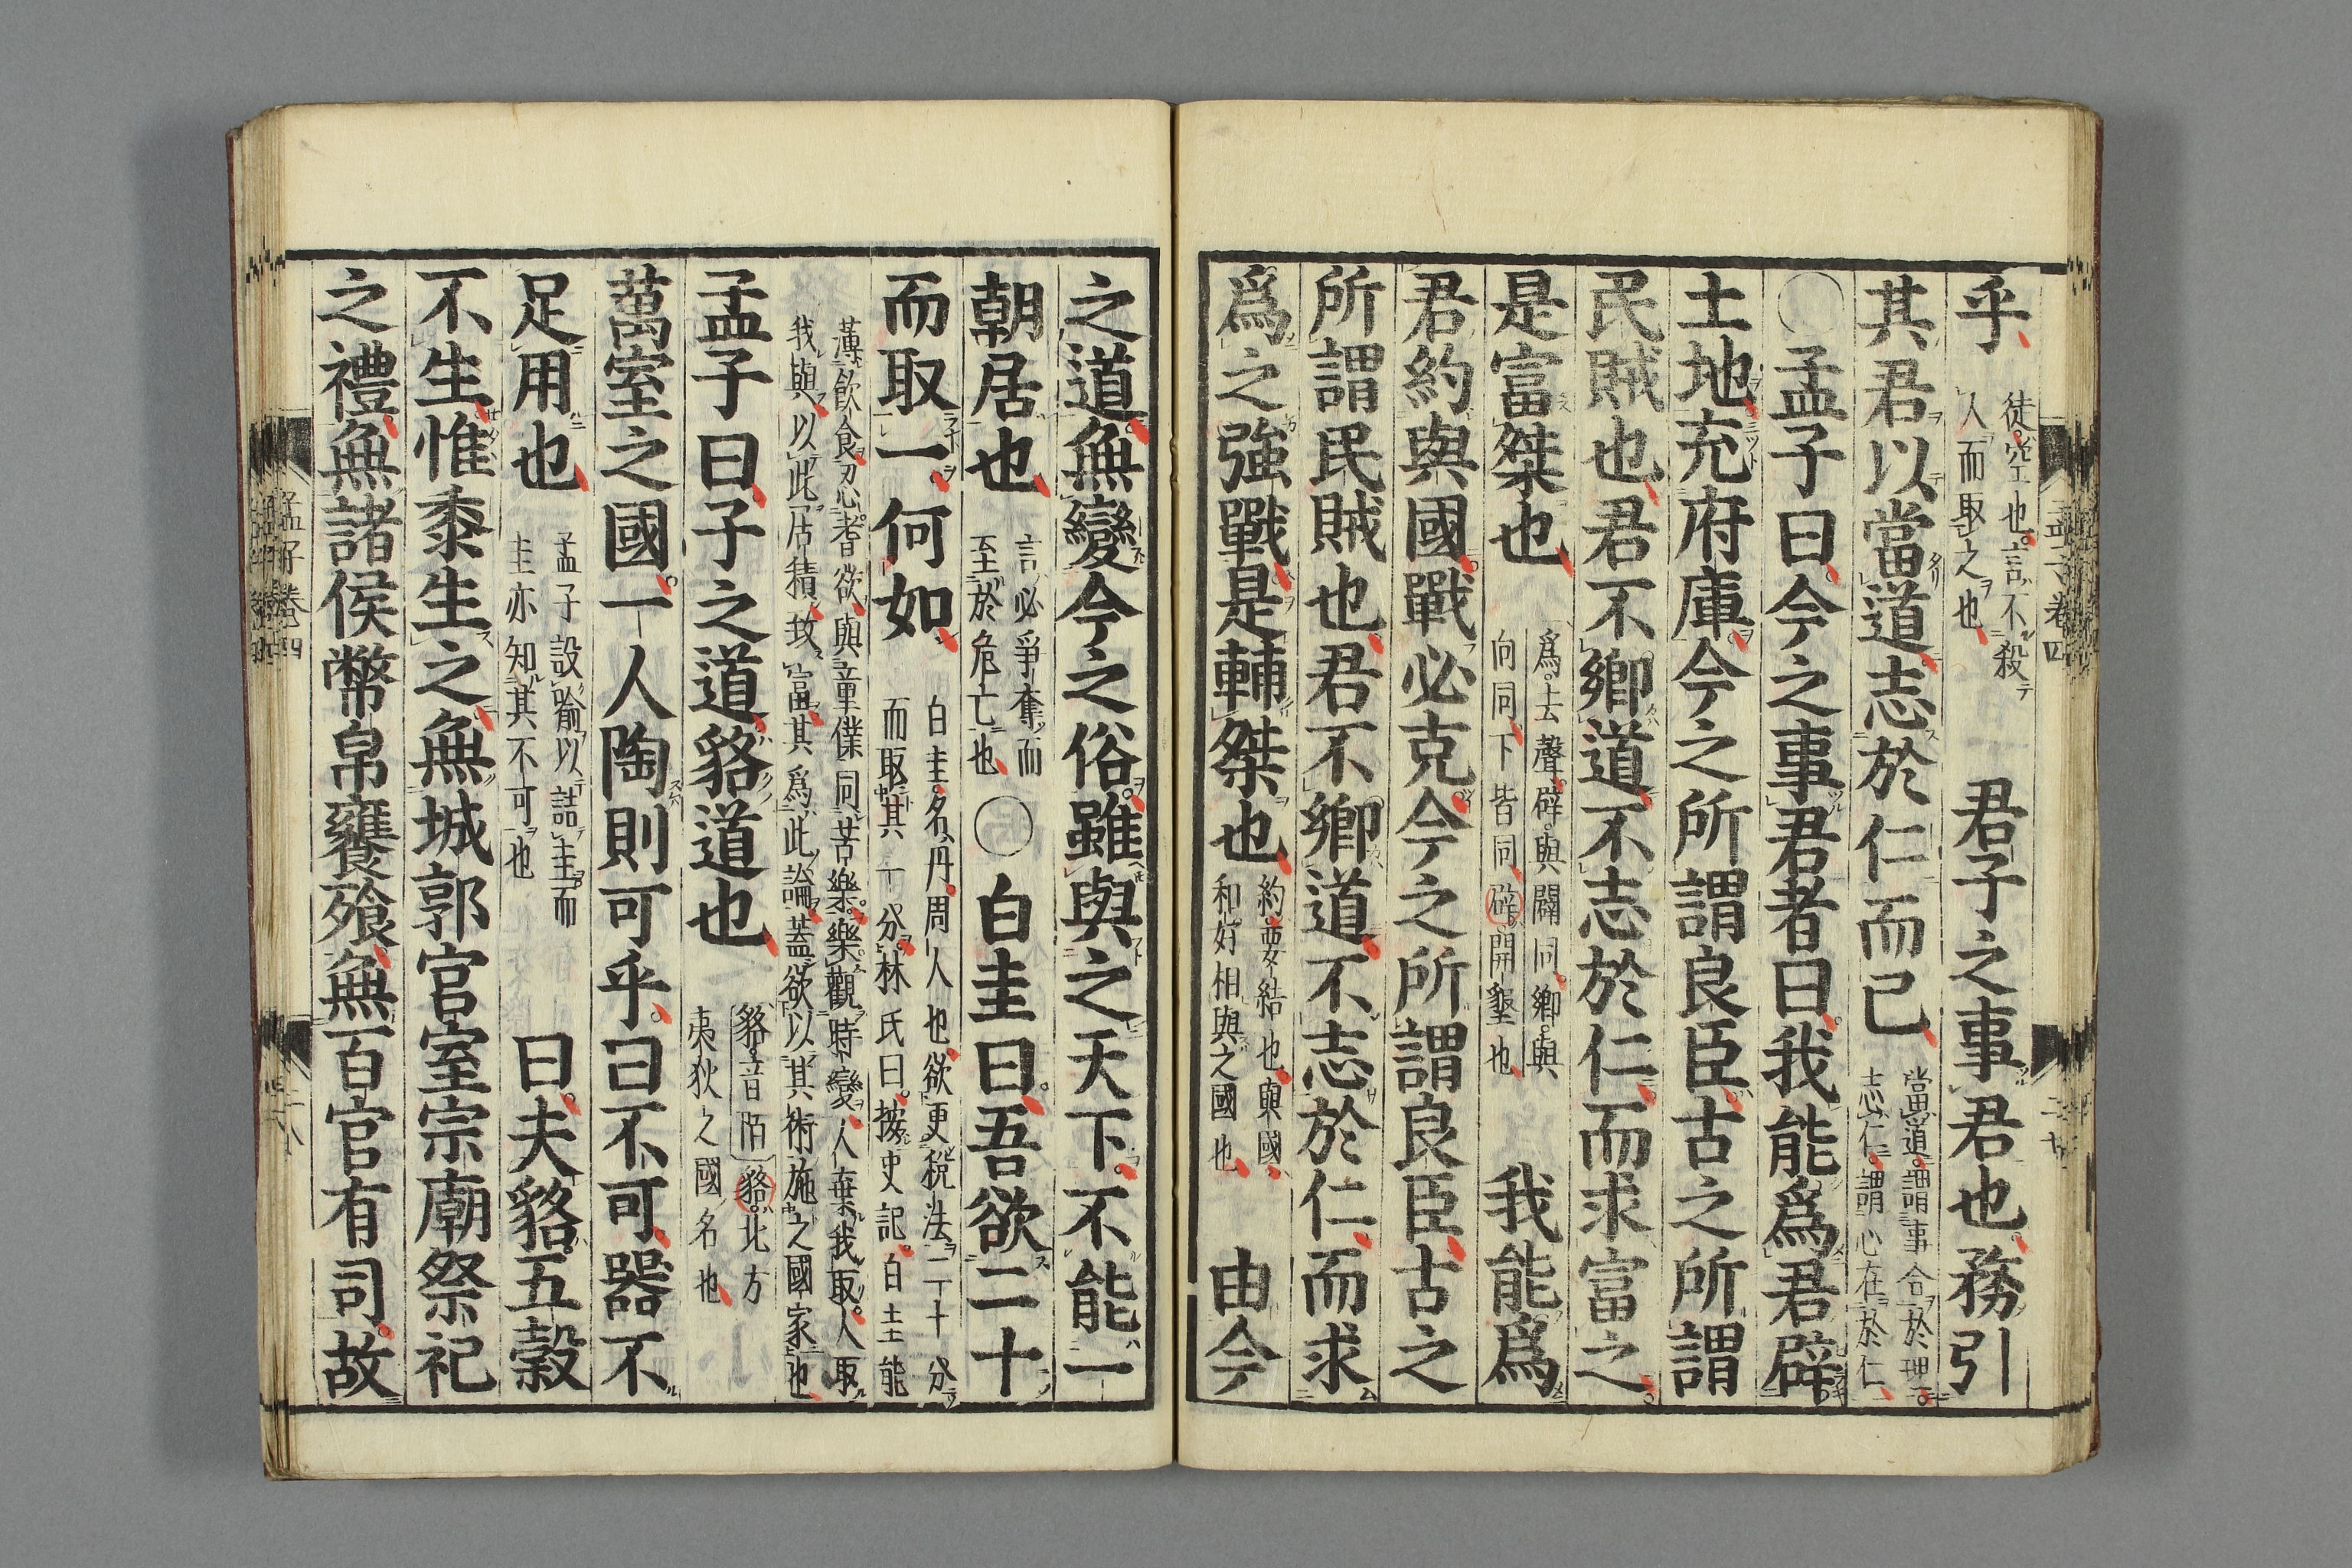 乎 徒空也言不殺人而取之也 君子之事君也務引
其君以當道志於仁而已 當道謂事合於理志仁謂心在於仁
○孟子曰今之事君者曰我能爲君辟
土地充府庫今之所謂良臣古之所謂
民賊也君不鄉道不志於仁而求富之
是富桀也 爲去聲辟與闢同鄉與向同下皆同辟開墾也 我能爲
君約與國戰必克今之所謂良臣古之
所謂民賊也君不鄉道不志於仁而求
爲之強戰是輔桀也 約要結也與國和好相與之國也 由今
之道無變今之俗雖與之天下不能一
朝居也 言必爭奪而至於危亡也 ○白圭曰吾欲二十
而取一何如 白圭名丹周人也欲更稅法二十分而取其一分林氏曰按史記白圭能
薄飲食忍耆欲與童僕同苦樂樂觀時變人棄我取人取我與以此居積致富其爲此論蓋欲以其術施之國家也
孟子曰子之道貉道也 貉音陌 貉北方夷狄之國名也
萬室之國一人陶則可乎曰不可器不
足用也 孟子設喻以詰圭而圭亦知其不可也 曰夫貉五穀
不生惟黍生之無城郭宮室宗廟祭祀
之禮無諸侯幣帛饔飧無百官有司故
孟子卷四
孟子卷四